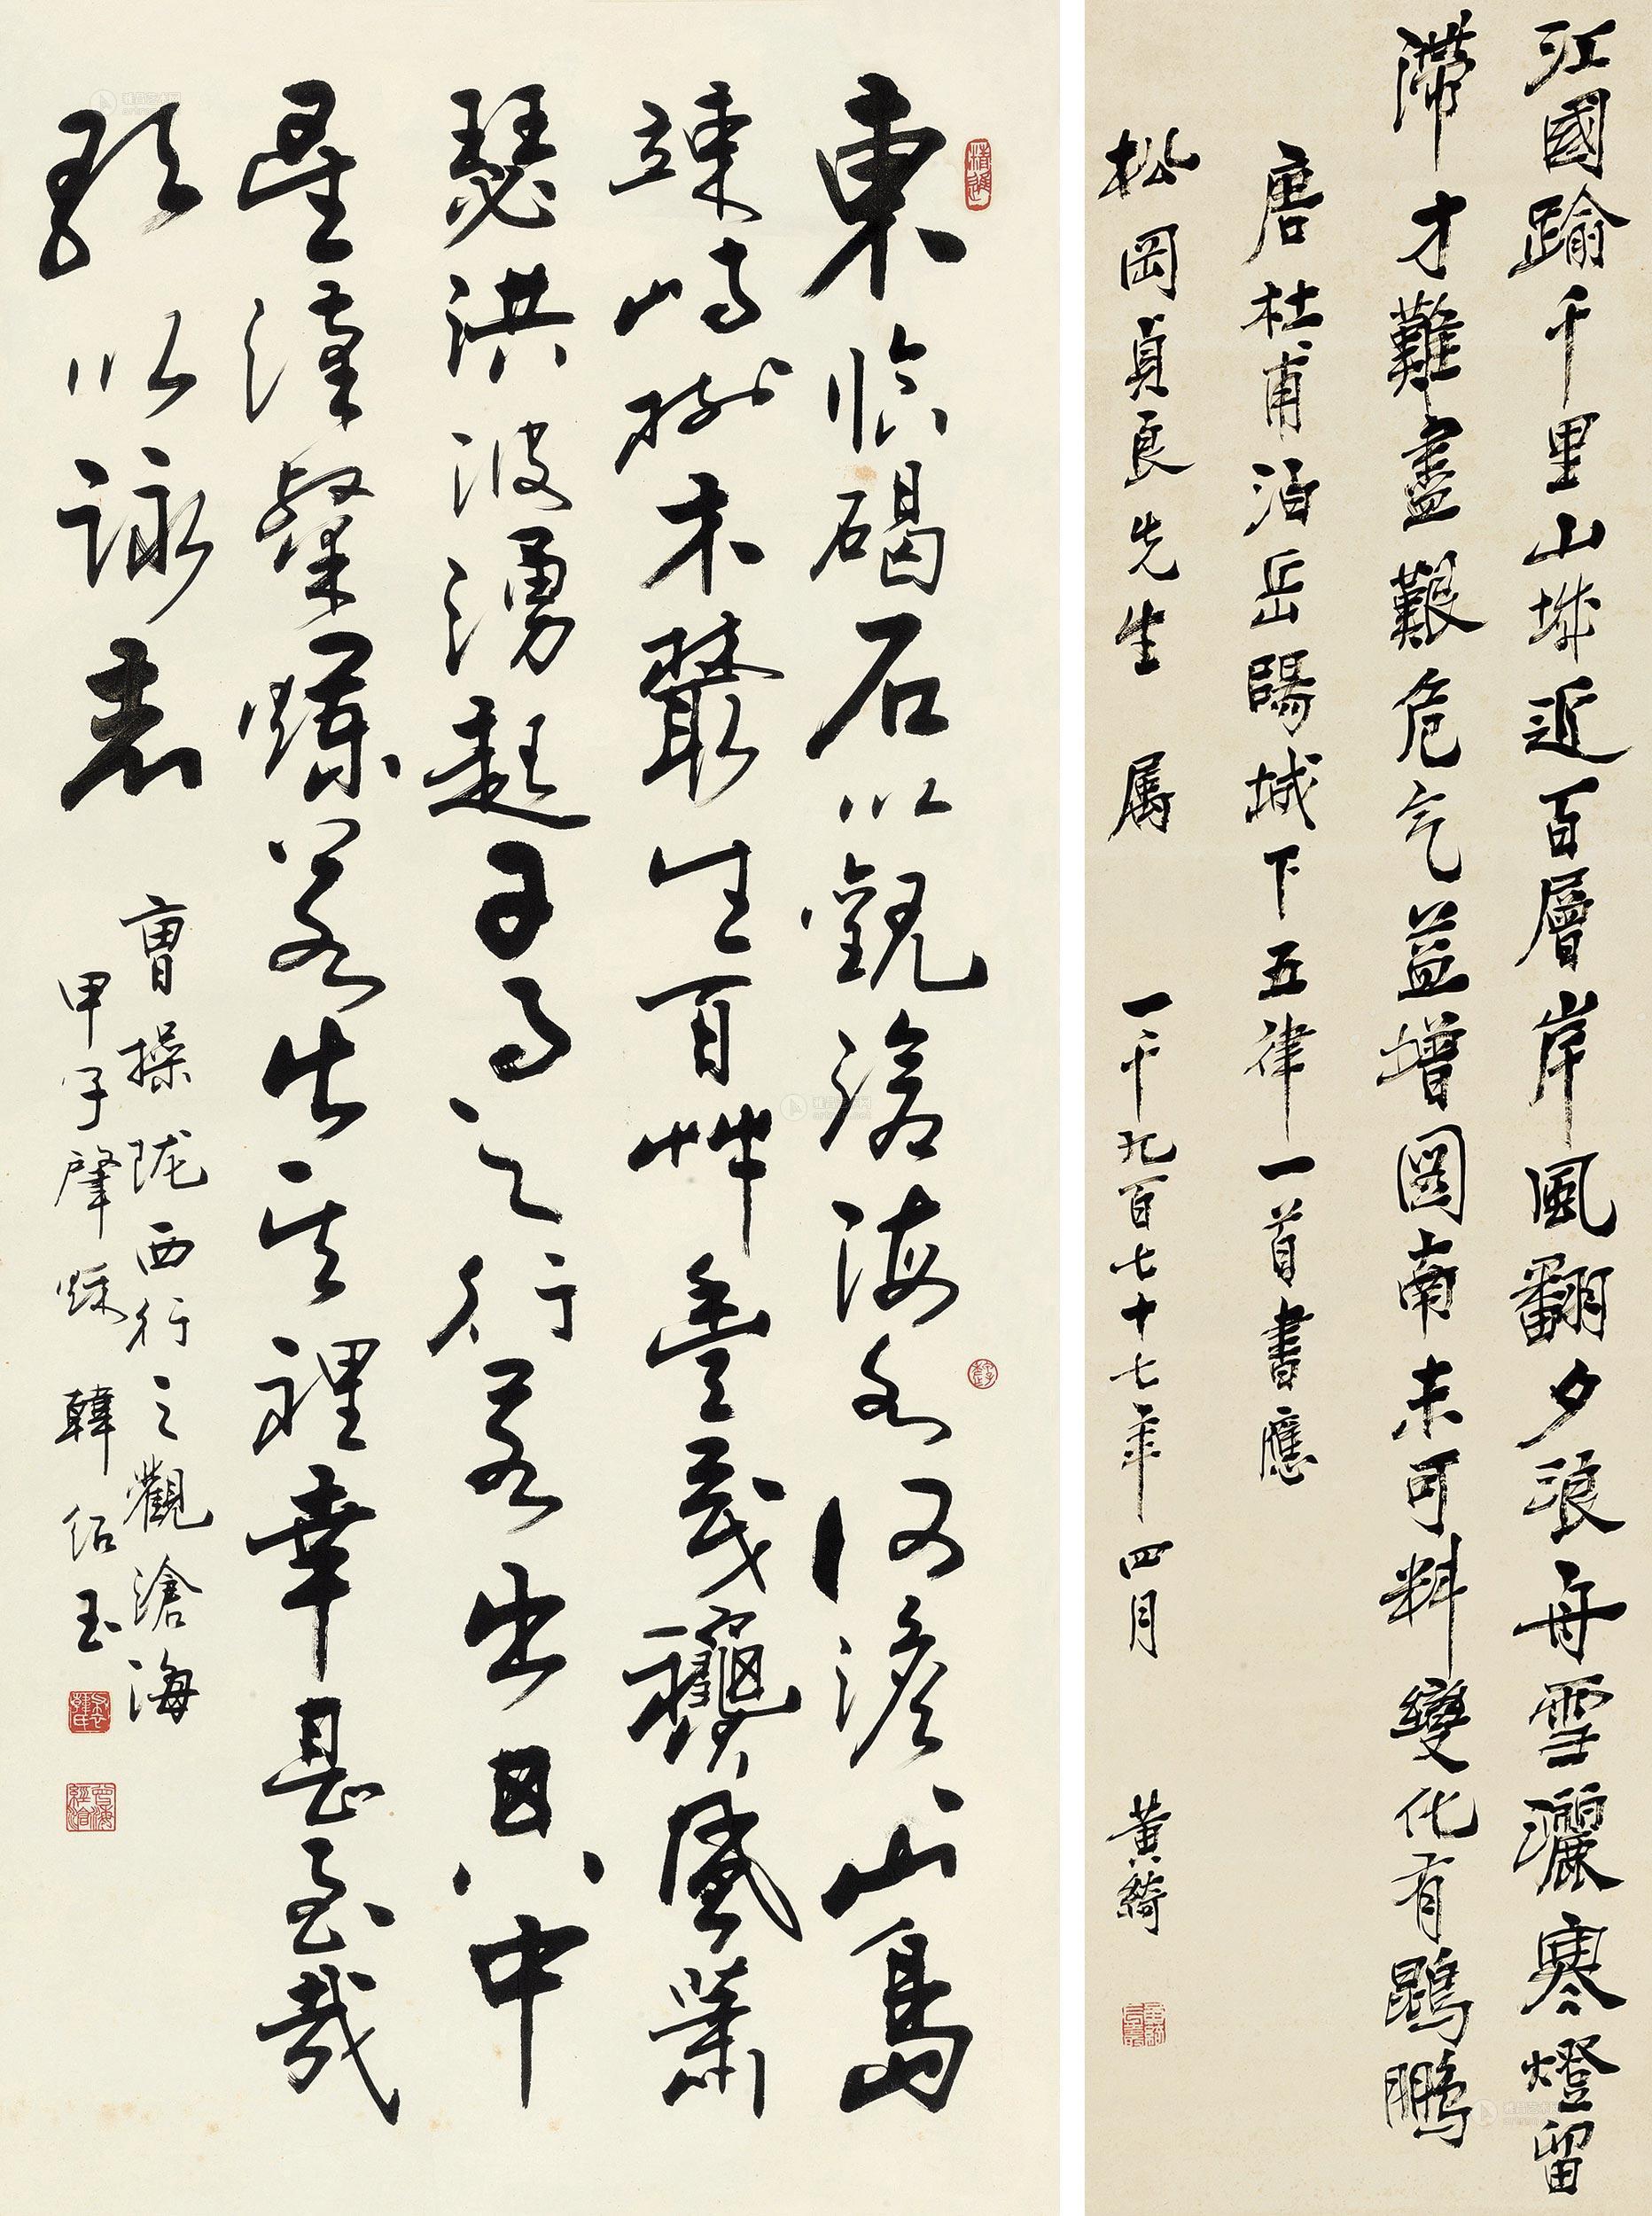 江國踰千里山城近百層岸風翻夕浪舟雪灑寒燈留
滯才難盡艱危气益增圖南未可料變化有鵾鵬
唐杜甫泊岳陽城下五律一首書應
松岡貞良先生 属 一千九百七十七年四月 黄綺
精進
東臨碣石以觀滄海水何澹〻山島
竦峙樹木叢生百艸豐茂龝風蕭
瑟洪波湧起日月之行若出其中
星漢粲爛若出其裡幸甚至哉
歌以詠志
曹操陇西行之觀滄海
甲子肇秌 韓绍玉